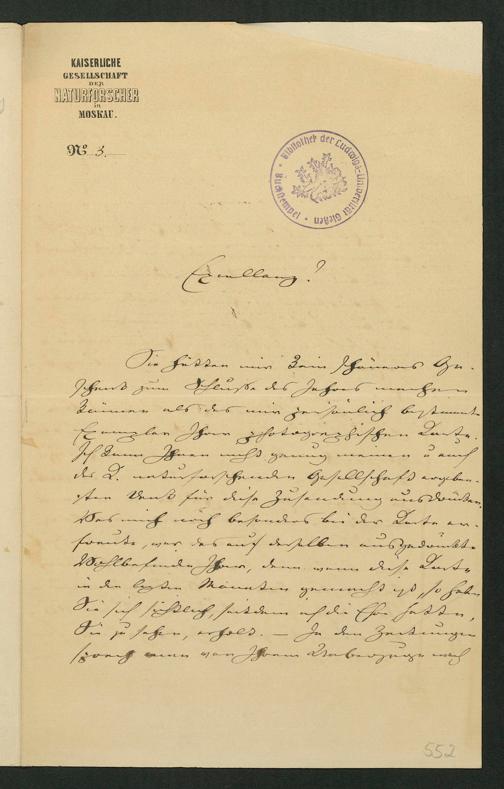 KAISERLICHE
GESELLSCHAFT
DER
NATURFORSCHER
in
MOSKAU.
№ 3.
Bibliothek der Ludwigs-Universität Gießen
Excellenz!
Sie hätten mir kein schöneres Ge-
schenk zum Schlusse des Jahres machen
können als das mir persönlich bestimmte
Exemplar Ihrer photographischen Karte.
Ich kann Ihnen nicht genug meinen u auch
der K. naturforschenden Gesellschaft ergeben-
sten Dank für diese Zusendung ausdrücken.
Was mich noch besonders bei der Karte er-
freute, war das auf derselben ausgedrückte
Wohlbefinden Ihrer, denn wenn diese Karte
in den letzten Monaten gemacht ist, so haben
Sie sich sichtlich, seitdem ich die Ehre hatte,
Sie zu sehen, erholt. — In den Zeitungen
sprach man von Ihrem Umzuge nach
552